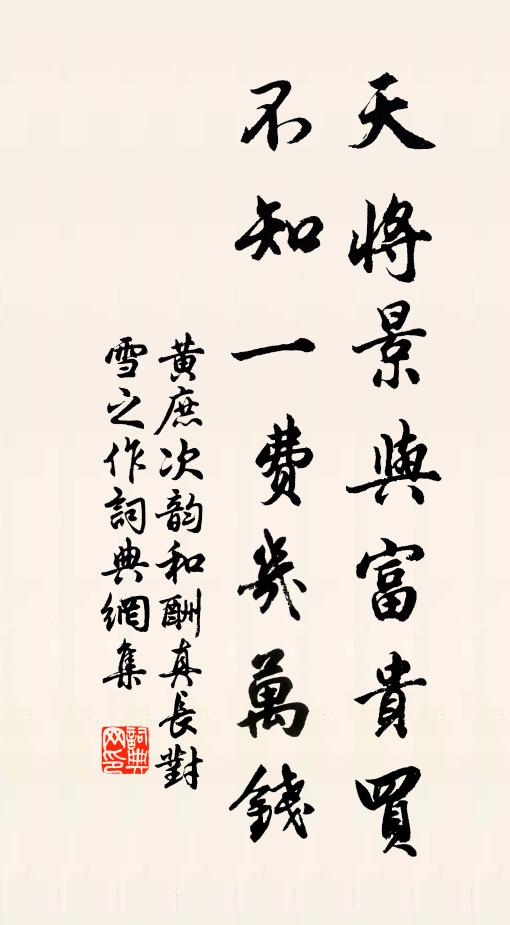 天將景與富貴買
不知一費幾萬錢
黃庶次韵和酬真長對
雪之作詞典網集
詞典网印